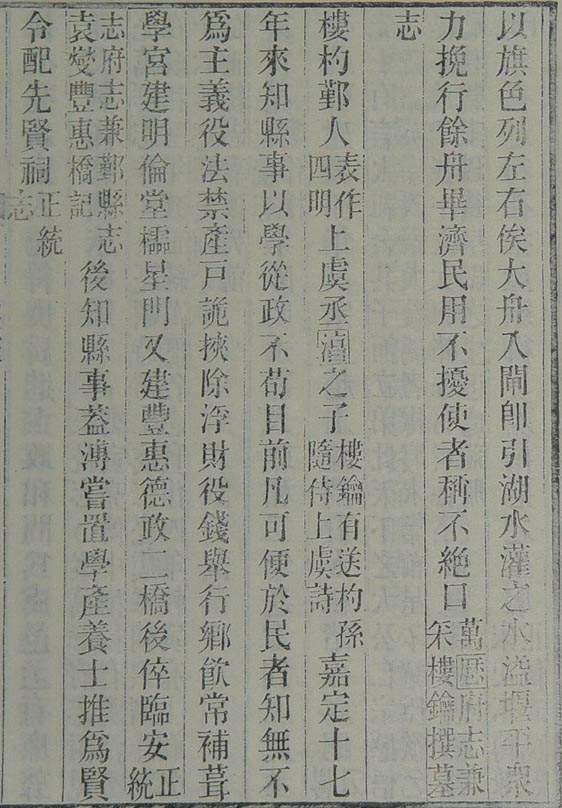 以旗色列左右俟大舟入閘卽引湖水灌之水溢堰平衆
力挽行餘舟畢濟民用不擾使者稱不絕口萬歷府志兼采樓鑰撰墓
志
樓杓鄞人表作四明上虞丞之子樓鑰有送杓孫隨侍上虞詩嘉定十七
年來知縣事以學從政不苟目前凡可便於民者知無不
爲主義役法禁產戸詭挾除浮財役錢舉行鄉飮常補葺
學宮建明倫堂櫺星門又建豐惠德政二橋後倅臨安正統
志府志兼鄞縣志袁燮豐惠橋記後知縣事葢溥嘗置學產養士推爲賢
令配先賢祠正統志